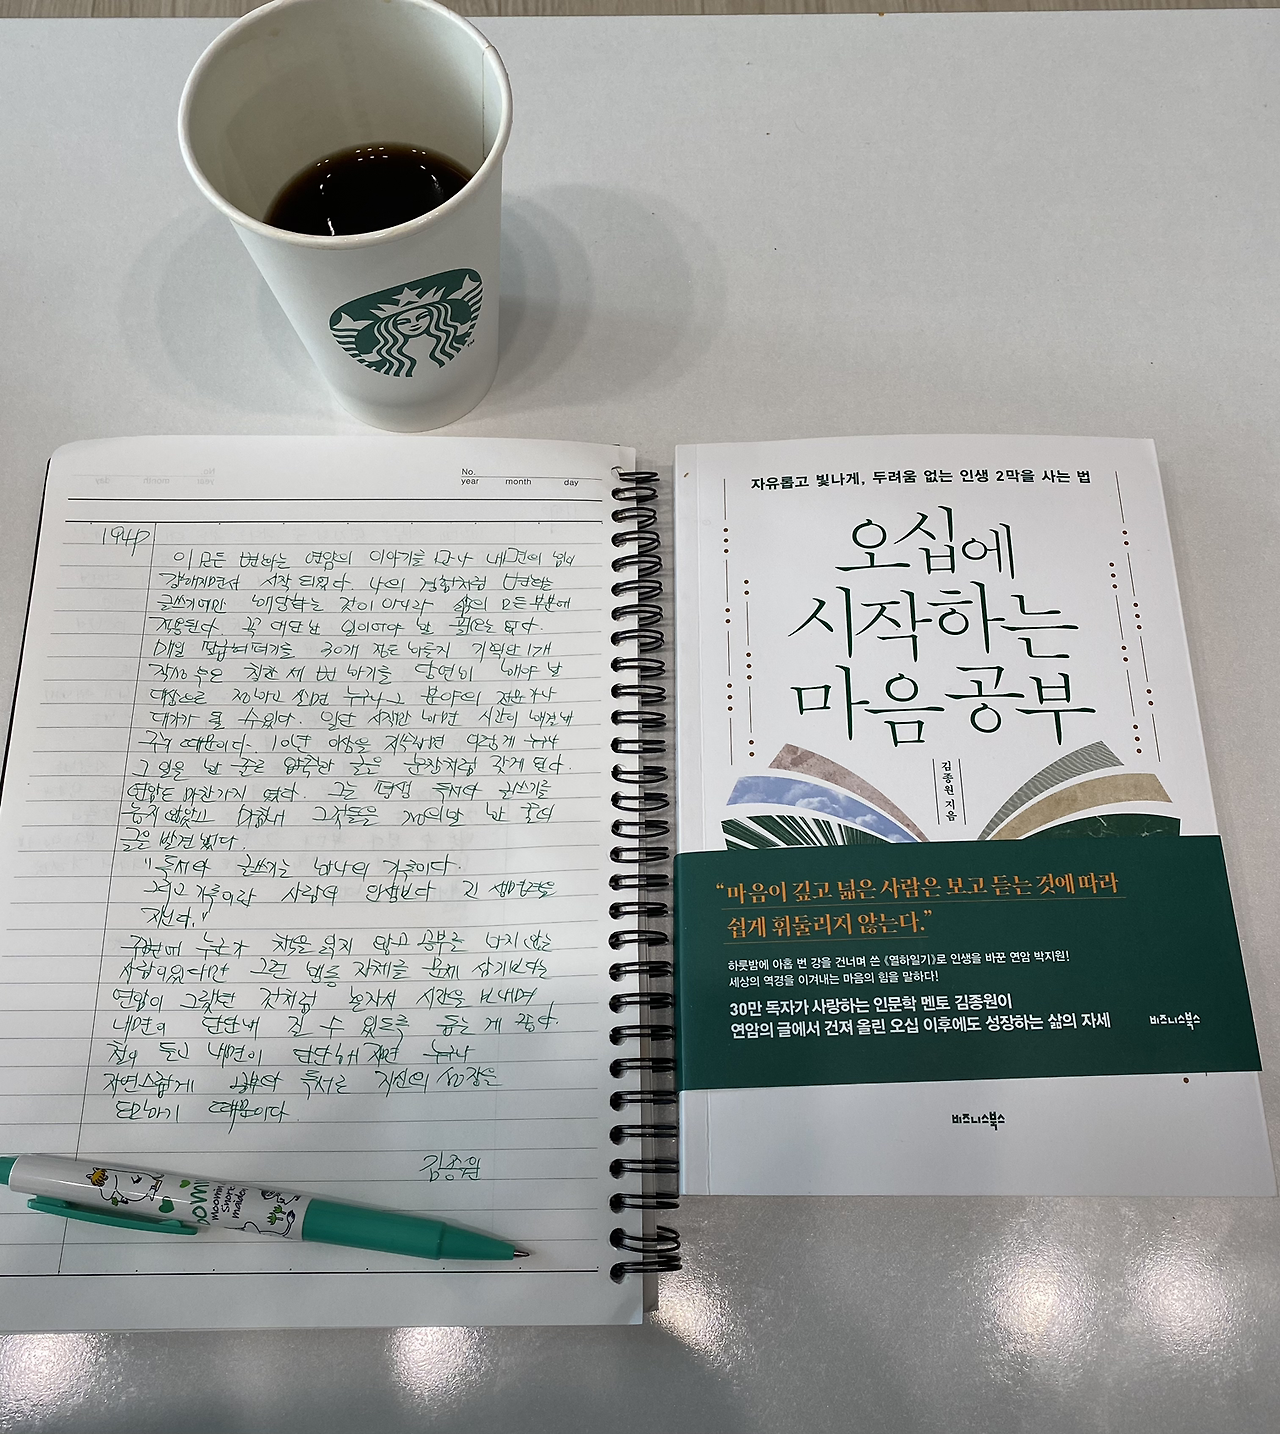 No.
year month day
194P
이 모든 변화는 연암의 이야기를 만나 내면의 힘이
강해지면서 시작 되었다. 나의 경험처럼 변화는
글쓰기에만 해당하는 것이 아니라 삶의 모든 부분에
적용된다. 꼭 대단한 일이어야 할 필요는 없다.
매일 팔굽혀펴기를 30개 정도 하든지 기획안 1개
작성 혹은 칭찬 세 번 하기를 당연히 해야 할
대상으로 정하고 살면 누구나 그 분야의 전문가나
대가가 될 수 있다. 일단 시작만 하면 시간이 해결해
주기 때문이다. 10년 이상을 지속하면 이렇게 누구나
그 일을 한 줄로 압축한 글은 문장처럼 갖게 된다.
연암도 마찬가지 였다. 그는 평생 독서와 글쓰기를
놓지 않았고 마침내 그것들을 정의할 한 줄의
글을 발견했다.
"독서와 글쓰기는 하나의 기록이다.
그리고 기록이란 사람의 인생보다 긴 생명력을
지닌다."
주변에 누군가 책을 읽지 않고 공부를 하지 않는
사람이 있다면 그런 행동 자체를 문제 삼기보다는
연암이 그랬던 것처럼 혼자서 시간을 보내며
내면이 단단해 질 수 있도록 돕는 게 좋다.
철이 들고 내면이 단단해 지면 누구나
자연스럽게 공부와 독서로 자신의 성장을
도모하기 때문이다.
김종원
moomin
snork
maiden
자유롭고 빛나게, 두려움 없는 인생 2막을 사는 법
오십에
시작하는
마음공부
김종원 지음
“마음이 깊고 넓은 사람은 보고 듣는 것에 따라
쉽게 휘둘리지 않는다.”
하룻밤에 아홉 번 강을 건너며 쓴 《열하일기》로 인생을 바꾼 연암 박지원!
세상의 역경을 이겨내는 마음의 힘을 말하다!
30만 독자가 사랑하는 인문학 멘토 김종원이
연암의 글에서 건져 올린 오십 이후에도 성장하는 삶의 자세
비즈니스북스
비즈니스북스